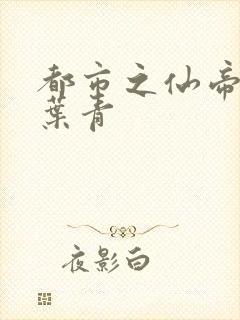 都市之仙帝
葉青
夜影白